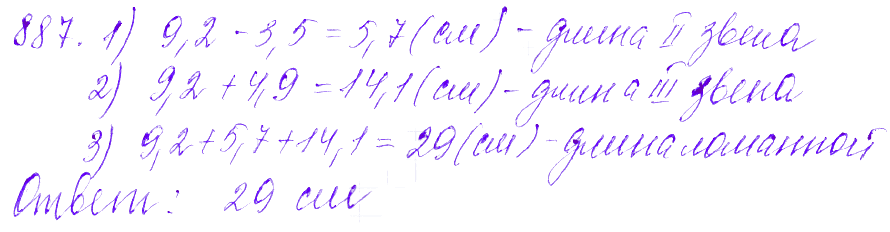 887. 1) 9,2 - 3,5 = 5,7 (см) - длина II звена
2) 9,2 + 4,9 = 14,1 (см) - длина III звена
3) 9,2 + 5,7 + 14,1 = 29 (см) - длина ломанной
Ответ: 29 см